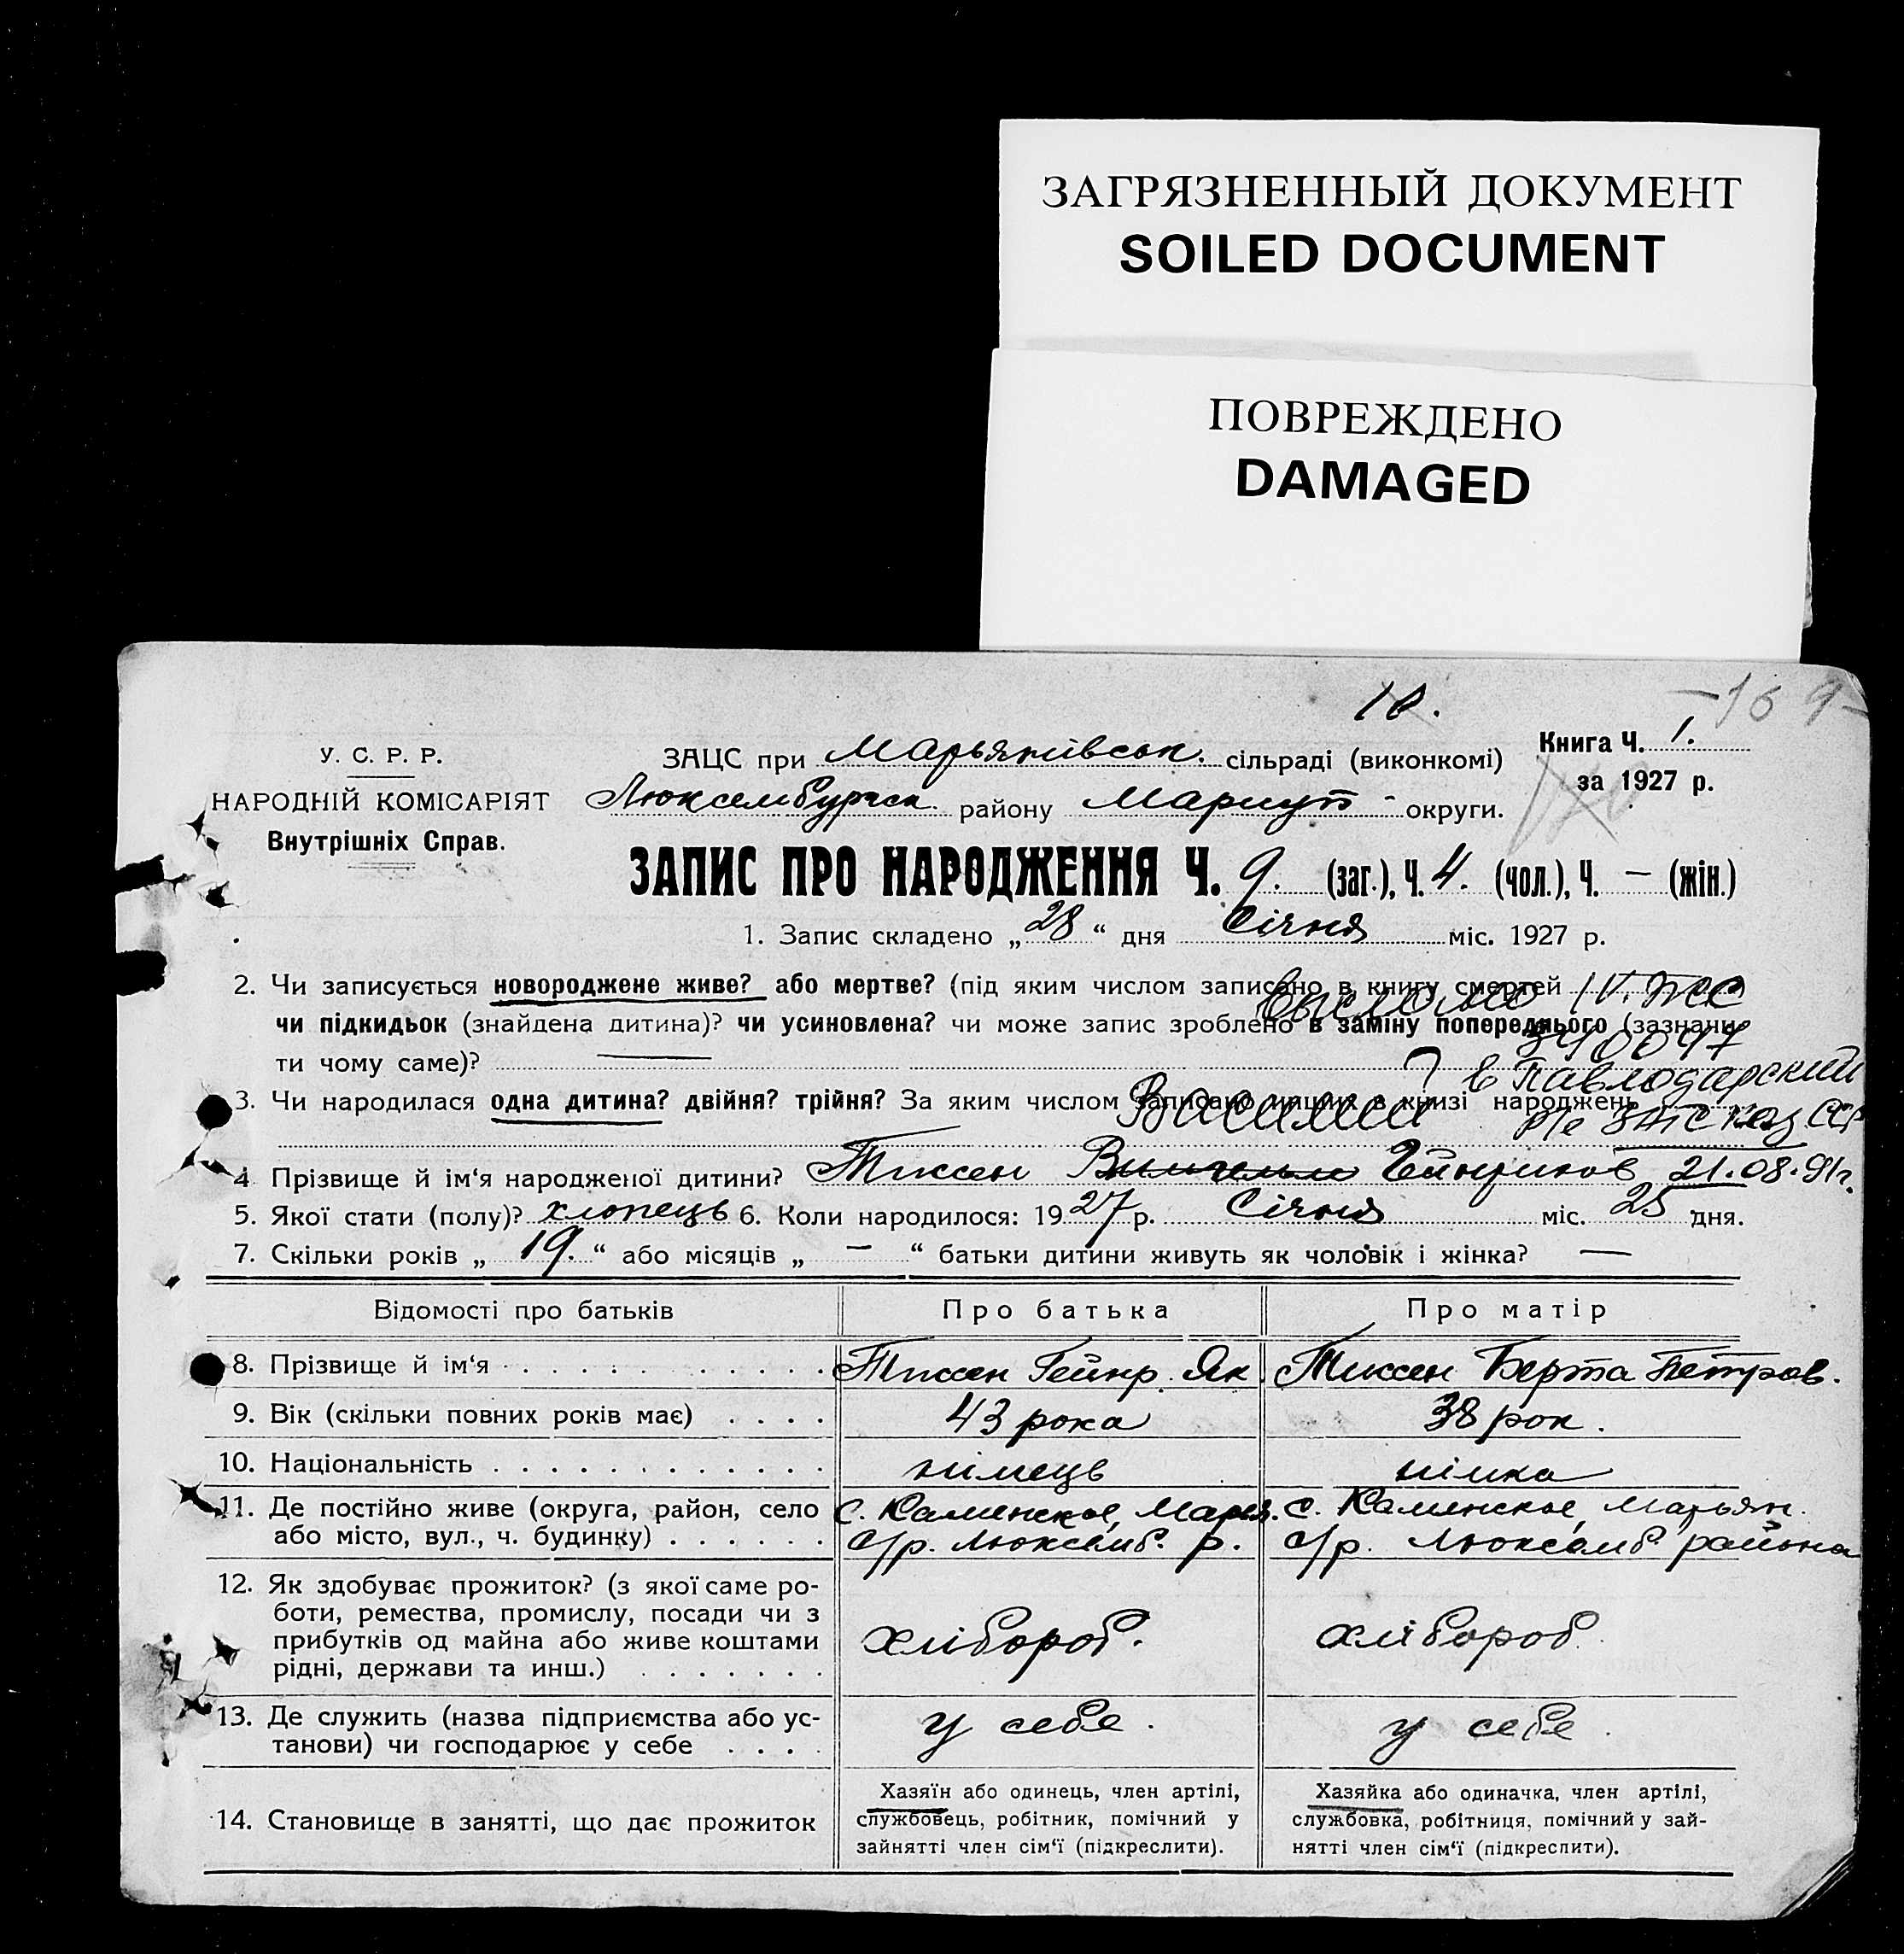 ЗАГРЯЗНЕННЫЙ ДОКУМЕНТ
SOILED DOCUMENT
ПОВРЕЖДЕНО
DAMAGED
10.
169
У. С. Р. Р.
НАРОДНІЙ КОМІСАРІЯТ
Внутрішніх Справ.
ЗАЦС при Марьянівськ. сільраді (виконкомі)
Люксембургск. району Мариуп - округи.
Книга Ч. 1.
за 1927 р.
ЗАПИС ПРО НАРОДЖЕННЯ Ч. 9. (заг.), Ч. 4. (чол.), Ч. — (жін.)
1. Запис складено „28“ дня Січня міс. 1927 р.
2. Чи записується новороджене живе? або мертве? (під яким числом записано в книгу смертей
чи підкидьок (знайдена дитина)? чи усиновлена? чи може запис зроблено в заміну попереднього (зазначи-
ти чому саме)? —
Выслано IV. ЖС
340047
в Павлодарский
р/о ЗАГС Каз ССР
21.08.91г.
3. Чи народилася одна дитина? двійня? трійня? За яким числом записано инших в книзі народжень
Василий
4 Прізвище й ім‘я народженої дитини? Тиссен Вильгельм Гейнрихов
5. Якої стати (полу)? хлопець 6. Коли народилося: 1927 р. Січня міс. 25 дня.
7. Скільки років „19.“ або місяців „—“ батьки дитини живуть як чоловік і жінка? —
Відомості про батьків Про батька Про матір
8. Прізвище й ім‘я Тиссен Гейнр. Як. Тиссен Берта Петров.
9. Вік (скільки повних років має) 43 рока 38 рок.
10. Національність німець німка
11. Де постійно живе (округа, район, село с. Каменское, Марья. с. Каменское, Марьян.
або місто, вул., ч. будинку) с/р. Люксемб. р. с/р. Люксемб. района
12. Як здобуває прожиток? (з якої саме ро-
боти, ремества, промислу, посади чи з
прибутків од майна або живе коштами
рідні, держави та инш.)
хлібороб. хлібороб.
13. Де служить (назва підприємства або ус-
танови) чи господарює у себе
у себе. у себе.
14. Становище в занятті, що дає прожиток
Хазяїн або одинець, член артілі,
службовець, робітник, помічний у
зайнятті член сім‘ї (підкреслити).
Хазяйка або одиначка, член артілі,
службовка, робітниця, помічний у зай-
нятті член сім‘ї (підкреслити).